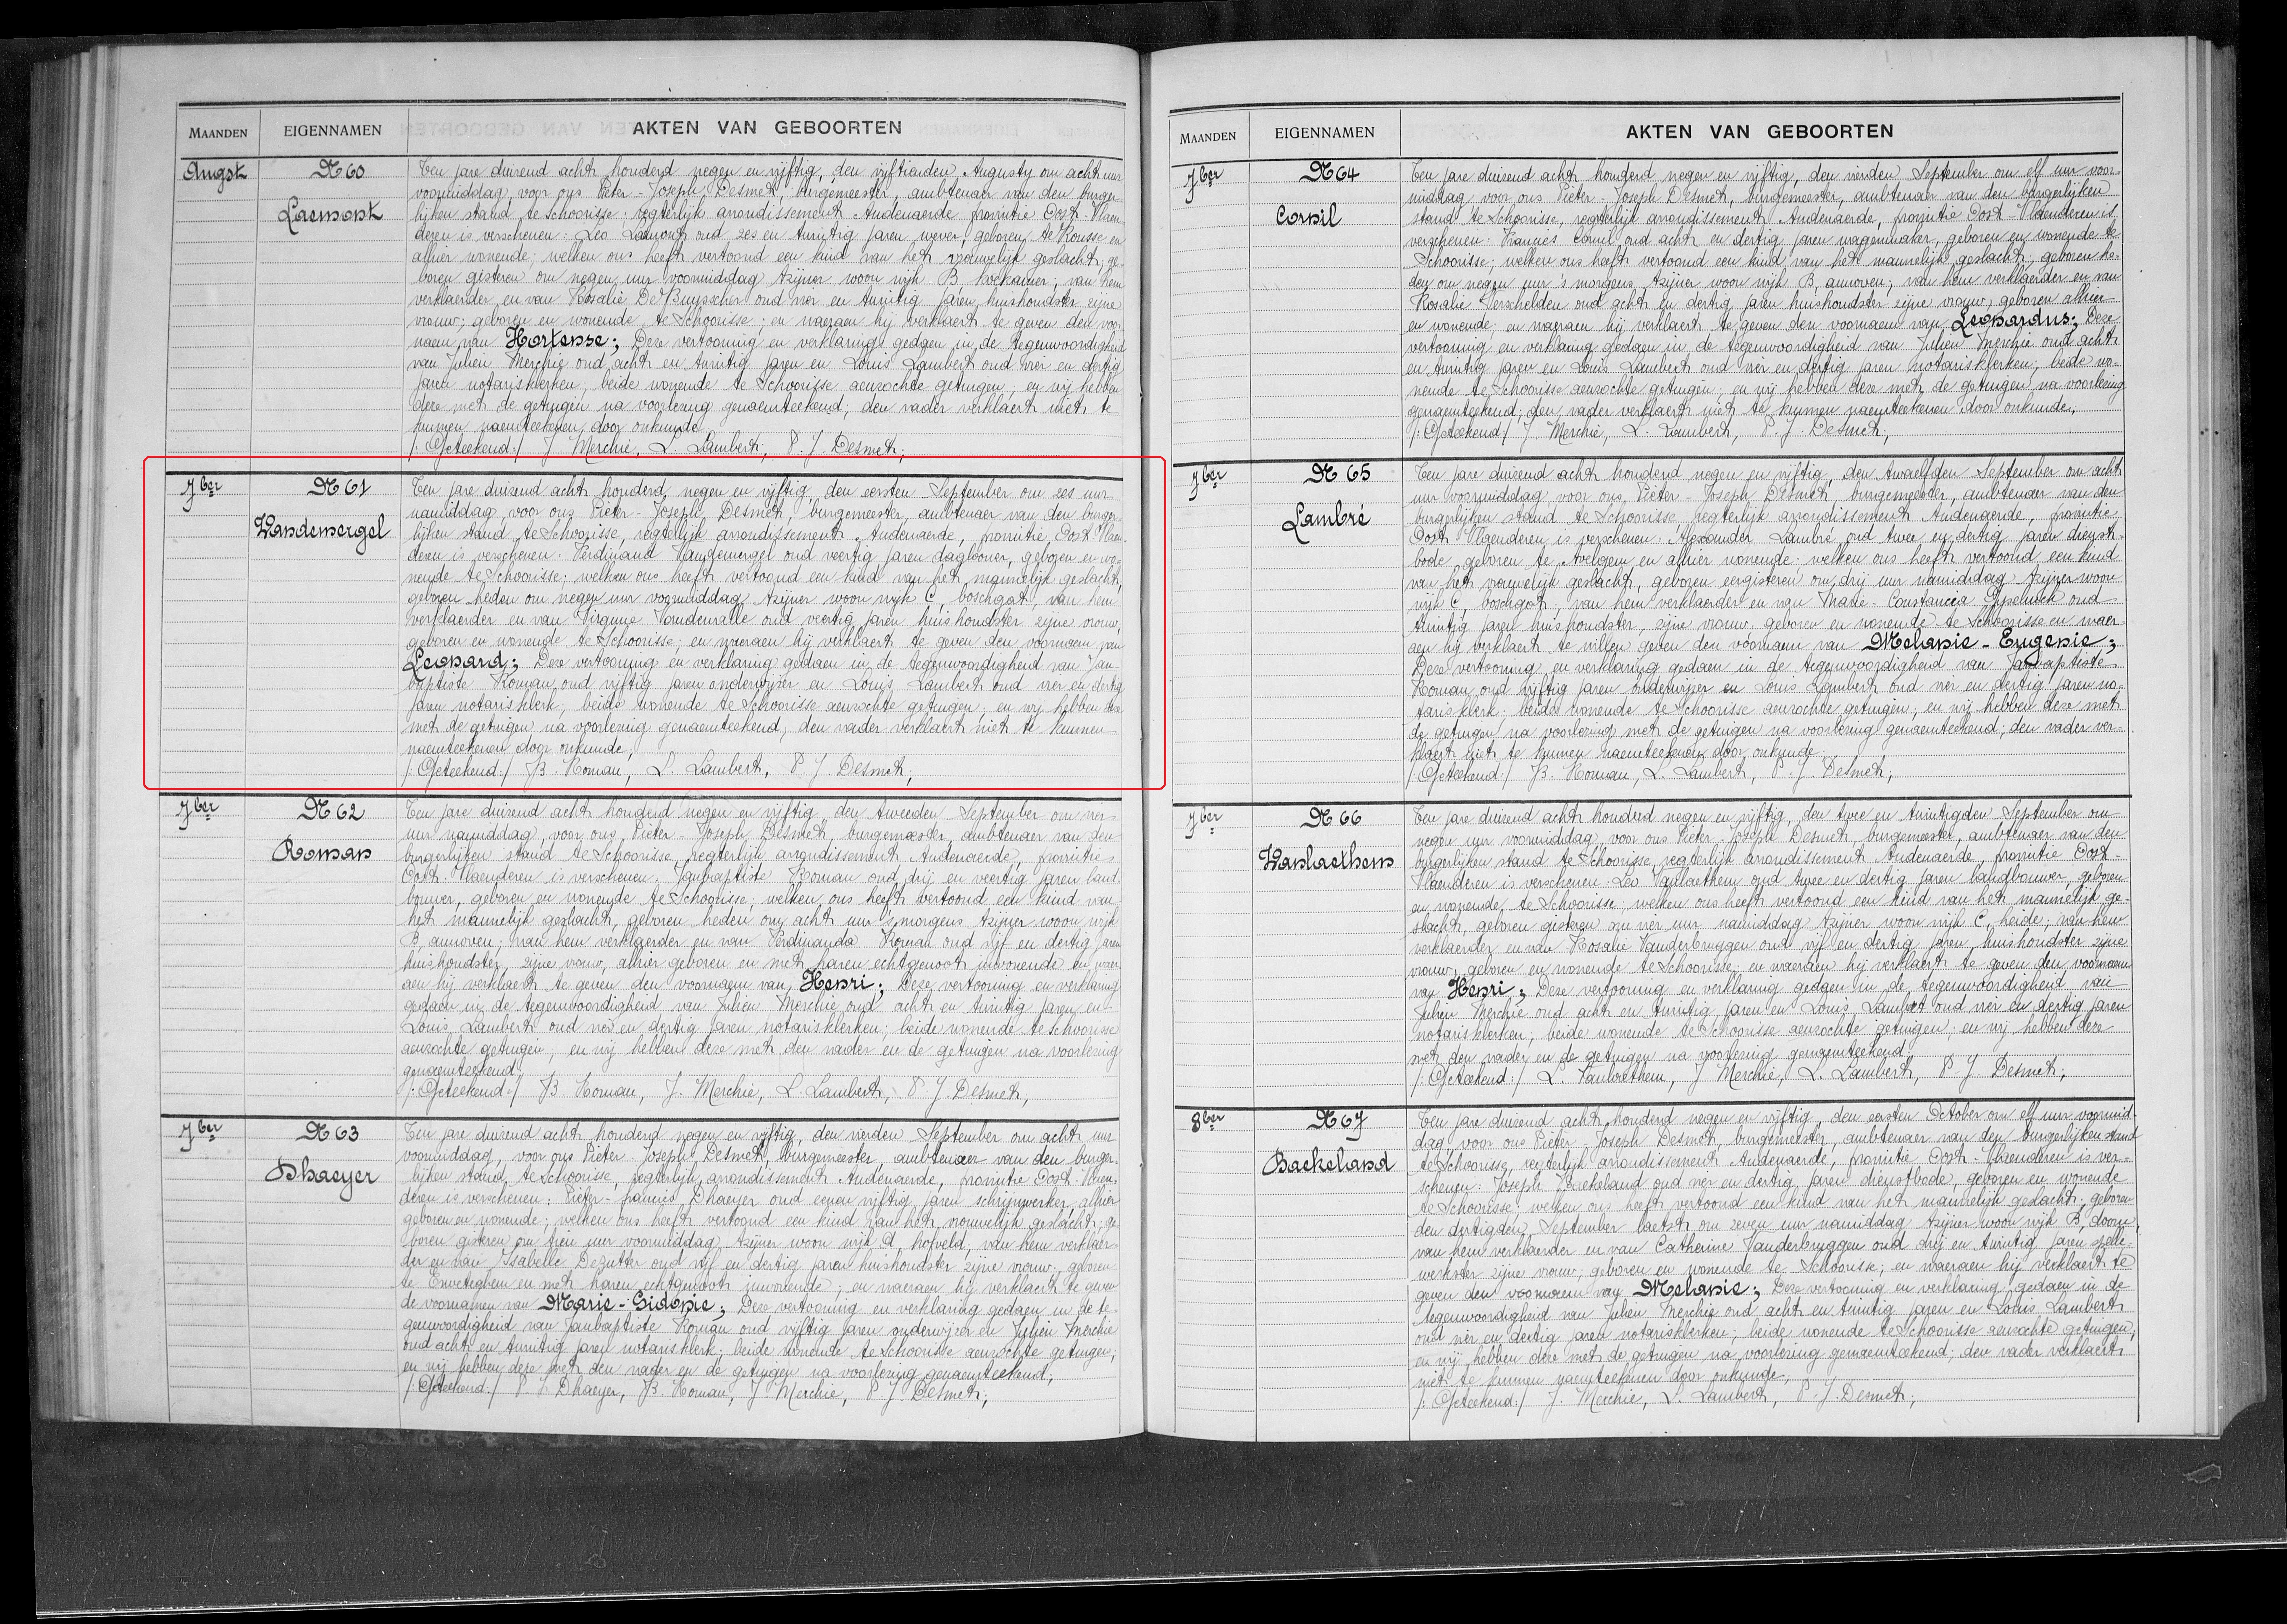 MAANDEN EIGENNAMEN AKTEN VAN GEBOORTEN
Augst N 60 Ten jare duizend acht honderd negen en vijftig, den vijftienden Augusty om acht uur
voormiddag, voor ons Pieter - Joseph Desmet, burgemeester, ambtenaer van den burger-
Laemont lijken stand te Schoorisse, regterlijk arrondissement Audenaerde, provintie Oost - Vlaen-
deren is verschenen: Leo Laemont oud zes en twintig jaren, wever, geboren te Ronsse en
alhier wonende; welken ons heeft vertoond een kind van het vrouwelijk geslacht; ge-
boren gisteren om negen uur voormiddag tzijner woon wijk B, van hem
verklaerder en van Rosalie De Buysscher oud vier en twintig jaren, huishoudster zijne
vrouw; geboren en wonende te Schoorisse; en waeraen hij verklaert te geven den voor-
naem van Hortense; Deze vertooning en verklaring gedaen in de tegenwoordigheid
van Julien Merchie oud acht en twintig jaren en Louis Lambert oud vier en dertig
jaren notarisklerken, beide wonende te Schoorisse aenzochte getuigen; en wij hebben
deze met de getuigen na voorlezing genaemteekend; den vader verklaert niet te
kunnen naemteekenen door onkunde.
/: Geteekend:/ J. Merchie, L. Lambert, P. J. Desmet;
7ber N 61 Ten jare duizend acht honderd negen en vijftig, den eersten September om zes uur
namiddag, voor ons Pieter - Joseph Desmet, burgemeester, ambtenaer van den burger-
Vandemergel lijken stand te Schoorisse, regterlijk arrondissement Audenaerde, provintie Oost Vlaen-
deren is verschenen: Ferdinand Vandemergel oud veertig jaren daglooner, geboren en wo-
nende te Schoorisse; welken ons heeft vertoond een kind van het mannelijk geslacht,
geboren heden om negen uur voormiddag tzijner woon wijk C, boschgat, van hem
verklaerder en van Virginie Vandenralle oud veertig jaren huishoudster zijne vrouw,
geboren en wonende te Schoorisse; en waeraen hij verklaert te geven den voornaem van
Leonard; Deze vertooning en verklaring gedaen in de tegenwoordigheid van Jan-
baptiste Roman oud vijftig jaren onderwijzer en Louis Lambert oud vier en dertig
jaren notarisklerk, beide wonende te Schoorisse aenzochte getuigen; en wij hebben deze
met de getuigen na voorlezing genaemteekend; den vader verklaert niet te kunnen
naemteekenen door onkunde;
/: Geteekend:/ JB. Roman, L. Lambert, P. J. Desmet;
7ber N 62 Ten jare duizend acht honderd negen en vijftig, den tweeden September om vier
uur namiddag, voor ons Pieter - Joseph Desmet, burgemeester, ambtenaer van den
Roman burgerlijken stand te Schoorisse, regterlijk arrondissement Audenaerde, provintie
Oost - Vlaenderen is verschenen: Janbaptiste Roman oud drij en veertig jaren land-
bouwer, geboren en wonende te Schoorisse, welken ons heeft vertoond een kind van
het mannelijk geslacht, geboren heden om acht uur 's morgens tzijner woon wijk
B, annoven; van hem verklaerder en van Ferdinanda Roman oud vijf en dertig jaren
huishoudster, zijne vrouw, alhier geboren en met haren echtgenoot inwonende en waer-
aen hij verklaert te geven den voornaem van Henri; Deze vertooning en verklaring
gedaen in de tegenwoordigheid van Julien Merchie oud acht en twintig jaren en
Louis Lambert oud vier en dertig jaren notarisklerken; beide wonende te Schoorisse
aenzochte getuigen, en wij hebben deze met den vader en de getuigen na voorlezing
genaemteekend;
/: Geteekend:/ JB Roman, J. Merchie, L. Lambert, P. J. Desmet,
7ber N 63 Ten jare duizend acht honderd negen en vijftig, den vierden September om acht uur
voormiddag, voor ons Pieter - Joseph Desmet, burgemeester, ambtenaer van den burger-
Dhaeyer lijken stand te Schoorisse, regterlijk arrondissement Audenaerde, provintie Oost - Vlaen-
deren is verschenen: Pieter - francies Dhaeyer oud eenen vijftig jaren schrijnwerker, alhier
geboren en wonende; welken ons heeft vertoond een kind van het vrouwelijk geslacht; ge-
boren gisteren om tien uur voormiddag tzijner woon wijk A, hofveld, van hem verklaer-
der en van Isabelle Dezutter oud vijf en dertig jaren huishoudster zijne vrouw, geboren
te Enveteghem en met haren echtgenoot inwonende; en waeraen hij verklaert te geven
de voornamen van Marie - Sidonie; Deze vertooning en verklaring gedaen in de te-
genwoordigheid van Janbaptiste Roman oud vijftig jaren onderwijzer en Julien Merchie
oud acht en twintig jaren notarisklerk; beide wonende te Schoorisse aenzochte getuigen,
en wij hebben deze met den vader en de getuigen na voorlezing genaemteekend;
/: Geteekend:/ P. F. Dhaeyer, JB. Roman, J. Merchie, P. J. Desmet;
MAANDEN EIGENNAMEN AKTEN VAN GEBOORTEN
7ber N 64 Ten jare duizend acht honderd negen en vijftig, den vierden September om elf uur voor-
middag, voor ons Pieter - Joseph Desmet, burgemeester, ambtenaer van den burgerlijken
Cornil stand te Schoorisse, regterlijk arrondissement Audenaerde, provintie Oost - Vlaenderen is
verschenen: Francies Cornil oud acht en dertig jaren wagenmaker, geboren en wonende te
Schoorisse; welken ons heeft vertoond een kind van het mannelijk geslacht, geboren he-
den om negen uur 's morgens, tzijner woon wijk B, annoven; van hem verklaerder en van
Rosalie Verschelden oud acht en dertig jaren huishoudster zijne vrouw, geboren alhier
en wonende, en waeraen hij verklaert te geven den voornaem van Leonardus; Deze
vertooning en verklaring gedaen in de tegenwoordigheid van Julien Merchie oud acht
en twintig jaren en Louis Lambert oud vier en dertig jaren notarisklerken; beide wo-
nende te Schoorisse aenzochte getuigen; en wij hebben deze met de getuigen na voorlezing
genaemteekend; den vader verklaert niet te kunnen naemteekenen door onkunde.
/: Geteekend:/ J. Merchie, L. Lambert, P. J. Desmet;
7ber N 65 Ten jare duizend acht honderd negen en vijftig, den twaelfden September om acht
uur voormiddag voor ons Pieter - Joseph Desmet, burgemeester, ambtenaer van den
Lambré burgerlijken stand te Schoorisse, regterlijk arrondissement Audenaerde, provintie
Oost Vlaenderen is verschenen: Alexander Lambré oud twee en dertig jaren dienst-
bode, geboren te Avelgem en alhier wonende: welken ons heeft vertoond een kind
van het vrouwelijk geslacht, geboren eergisteren om drij uur namiddag tzijner woon
wijk C, boschgat, van hem verklaerder en van Marie - Constancia Gyselinck oud
twintig jaren huishoudster, zijne vrouw, geboren en wonende te Schoorisse en waer-
aen hij verklaert te willen geven den voornaem van Melanie - Eugenie;
Deze vertooning en verklaring gedaen in de tegenwoordigheid van Janbaptiste
Roman oud vijftig jaren onderwijzer en Louis Lambert oud vier en dertig jaren no-
tarisklerk, beide wonende te Schoorisse aenzochte getuigen; en wij hebben deze met
de getuigen na voorlezing met de getuigen na voorlezing genaemteekend; den vader ver-
klaert niet te kunnen naemteekenen door onkunde.
/: Geteekend:/ JB. Roman, L. Lambert, P. J. Desmet;
7ber N 66 Ten jare duizend acht honderd negen en vijftig, den twee en twintigden September om
negen uur voormiddag, voor ons Pieter Joseph Desmet burgemeester, ambtenaer van den
Vanlaethem burgerlijken stand te Schoorisse, regterlijk arrondissement Audenaerde, provintie Oost -
Vlaenderen is verschenen: Leo Vanlaethem oud twee en dertig jaren landbouwer, geboren
en wonende te Schoorisse, welken ons heeft vertoond een kind van het mannelijk ge-
slacht, geboren gisteren om vier uur namiddag tzijner woon wijk C, heide; van hem
verklaerder en van Rosalie Vanderbruggen oud vijf en dertig jaren, huishoudster zijne
vrouw, geboren en wonende te Schoorisse; en waeraen hij verklaert te geven den voornaem
van Henri; Deze vertooning en verklaring gedaen in de tegenwoordigheid van
Julien Merchie oud acht en twintig jaren en Louis Lambert oud vier en dertig jaren
notarisklerken, beide wonende te Schoorisse aenzochte getuigen; en wij hebben deze
met den vader en de getuigen na voorlezing genaemteekend.
/: Geteekend:/ L. Vanlaethem, J Merchie, L. Lambert, P. J. Desmet;
8ber N 67 Ten jare duizend acht honderd negen en vijftig den eersten October om elf uur voormid-
dag, voor ons Pieter - Joseph Desmet, burgemeester, ambtenaer van den burgerlijken stand
Backeland te Schoorisse, regterlijk arrondissement Audenaerde, provintie Oost - Vlaenderen is ver-
schenen: Joseph Backeland oud vier en dertig jaren dienstbode, geboren en wonende
te Schoorisse; welken ons heeft vertoond een kind van het mannelijk geslacht; geboren
den dertigden September laetst om zeven uur namiddag tzijner woon wijk B, doorn,
van hem verklaerder en van Catherine Vanderbruggen oud drij en twintig jaren spelle-
werkster zijne vrouw, geboren en wonende te Schoorisse; en waeraen hij verklaert te
geven den voornaem van Melanie; Deze vertooning en verklaring gedaen in de
tegenwoordigheid van Julien Merchie oud acht en twintig jaren en Louis Lambert
oud vier en dertig jaren notarisklerken; beide wonende te Schoorisse aenzochte getuigen,
en wij hebben deze met de getuigen na voorlezing genaemteekend; den vader verklaert
niet te kunnen naemteekenen door onkunde;
/: Geteekend:/ J. Merchie, L. Lambert, P. J. Desmet;